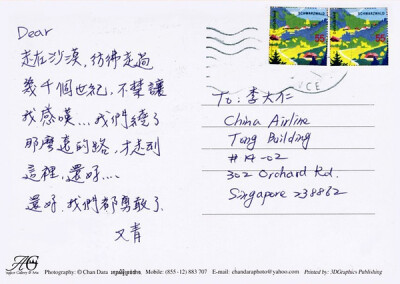 Dear
走在沙漠,彷彿走過
幾千個世紀,不禁讓
我感嘆...我們繞了
那麼遠的路,才走到
這裡,還好....
還好,我們都勇敢了
又青
SCHWARZWALD
55
SCHWARZWALD
55
To: 李大仁
China Airline
Tong Building
#14-02
302 Orchard Rd.
Singapore 238862
Photography: © Chan Dara Mobile: (855 -12) 883 707 E-mail: chandaraphoto@yahoo.com Printed by: 3DGraphics Publishing